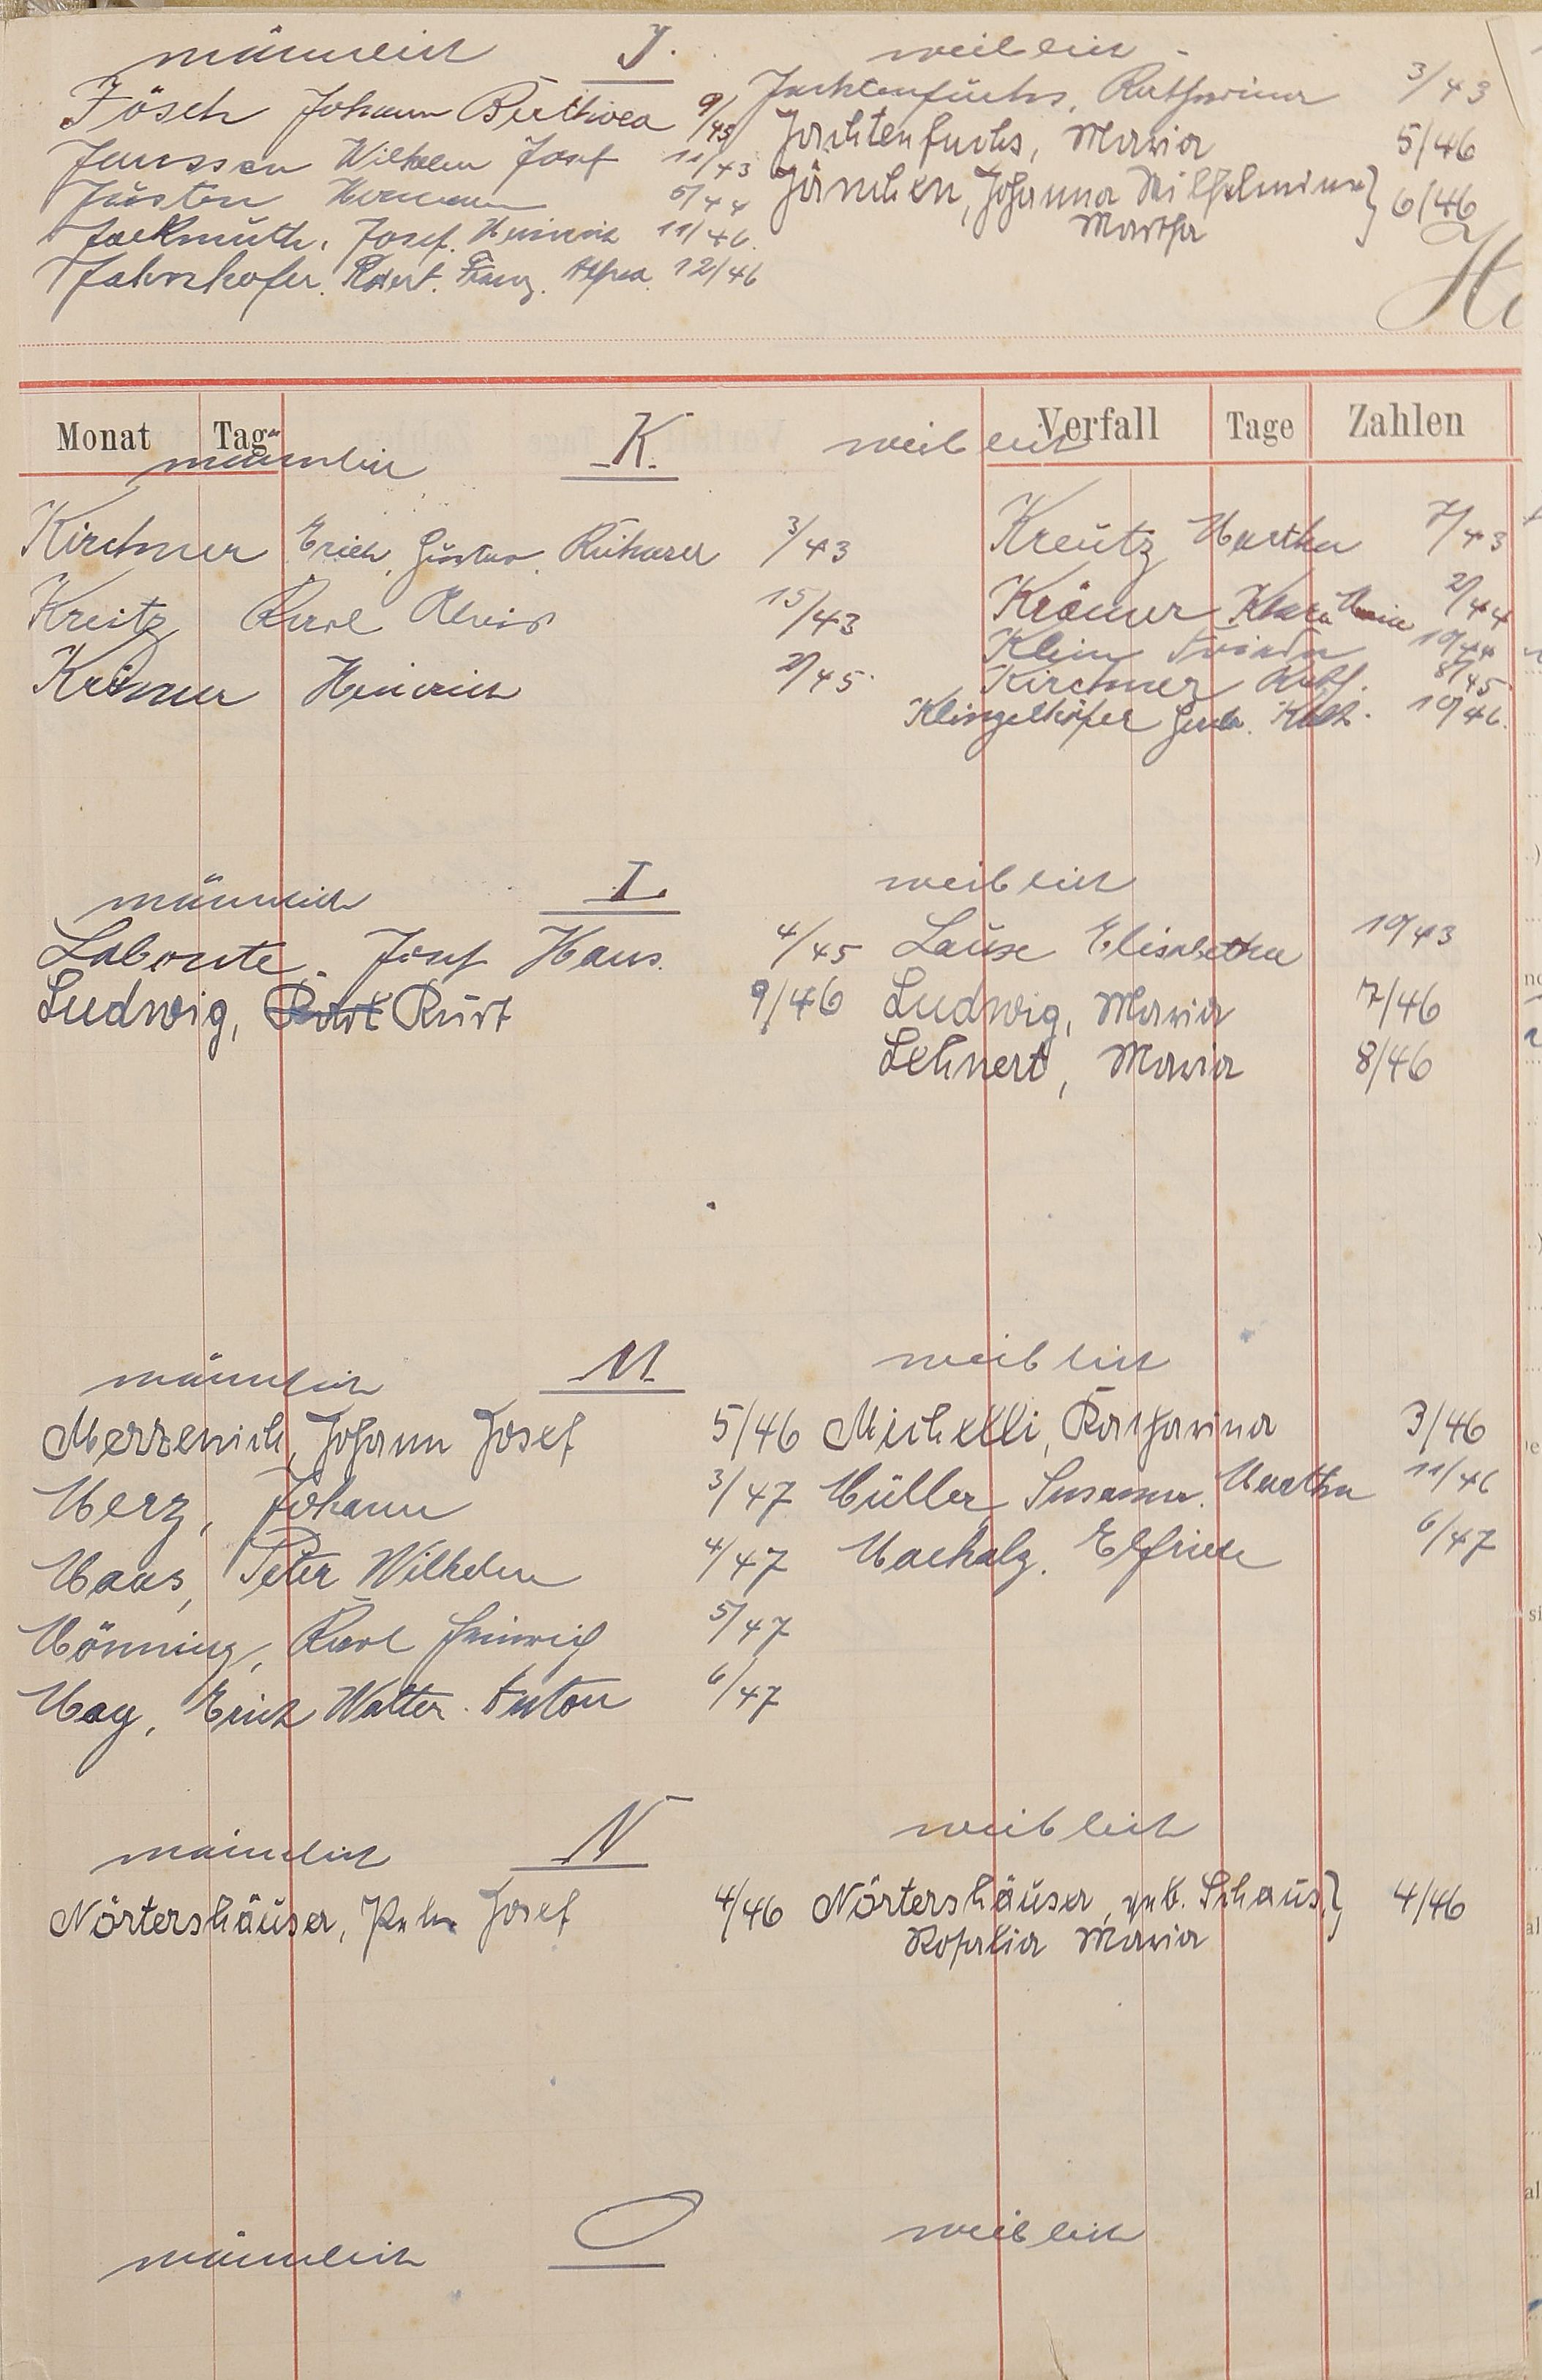 männlich J. weiblich
Jösch Johann 9/43 Jachtenfuchs, Katharina 3/43
Janssen Wilhelm Josef 11/43 Jachtenfuchs, Maria 5/46
Justen Hermann 6/44 Jänchen, Johanna Wilhelmine } 6/46
Martha
Jackmuth, Josef. Heinrich 11/46.
Jahnshofer. Robert. Franz. 12/46
Monat Tag Verfall Tage Zahlen
männlich K. weiblich
Kirchner Erich, Gustav, 3/43 Kreutz Martha 7/43
Kreitz Karl Alois 15/43 Krämer Klara Maria 2/44
Klein Frieda 10/44
Krämer Heinrich 2/45. Kirchner Kath. 8/45
Klingelhöfer Gerda. Kath. 10/46.
männlich L. weiblich
Labonte. Josef Hans. 4/45 Lause Elisabetha 10/43
Ludwig, Kurt 9/46 Ludwig, Maria 7/46
Lehnert, Maria 8/46
männlich M weiblich
Merzenich, Johann Josef 5/46 Michelli, Katharina 3/46
Merz, Johann 3/47 Müller, Susanna. Martha 11/46
Maas, Peter Wilhelm 4/47 Machalz. Elfriede 6/47
Mönning, Karl Heinrich 5/47
May, Erich Walter. Anton 6/47
männlich N weiblich
Nörtershäuser, Josef 4/46 Nörtershäuser, geb. Schaus, } 4/46
Rosalia Maria
männlich O weiblich